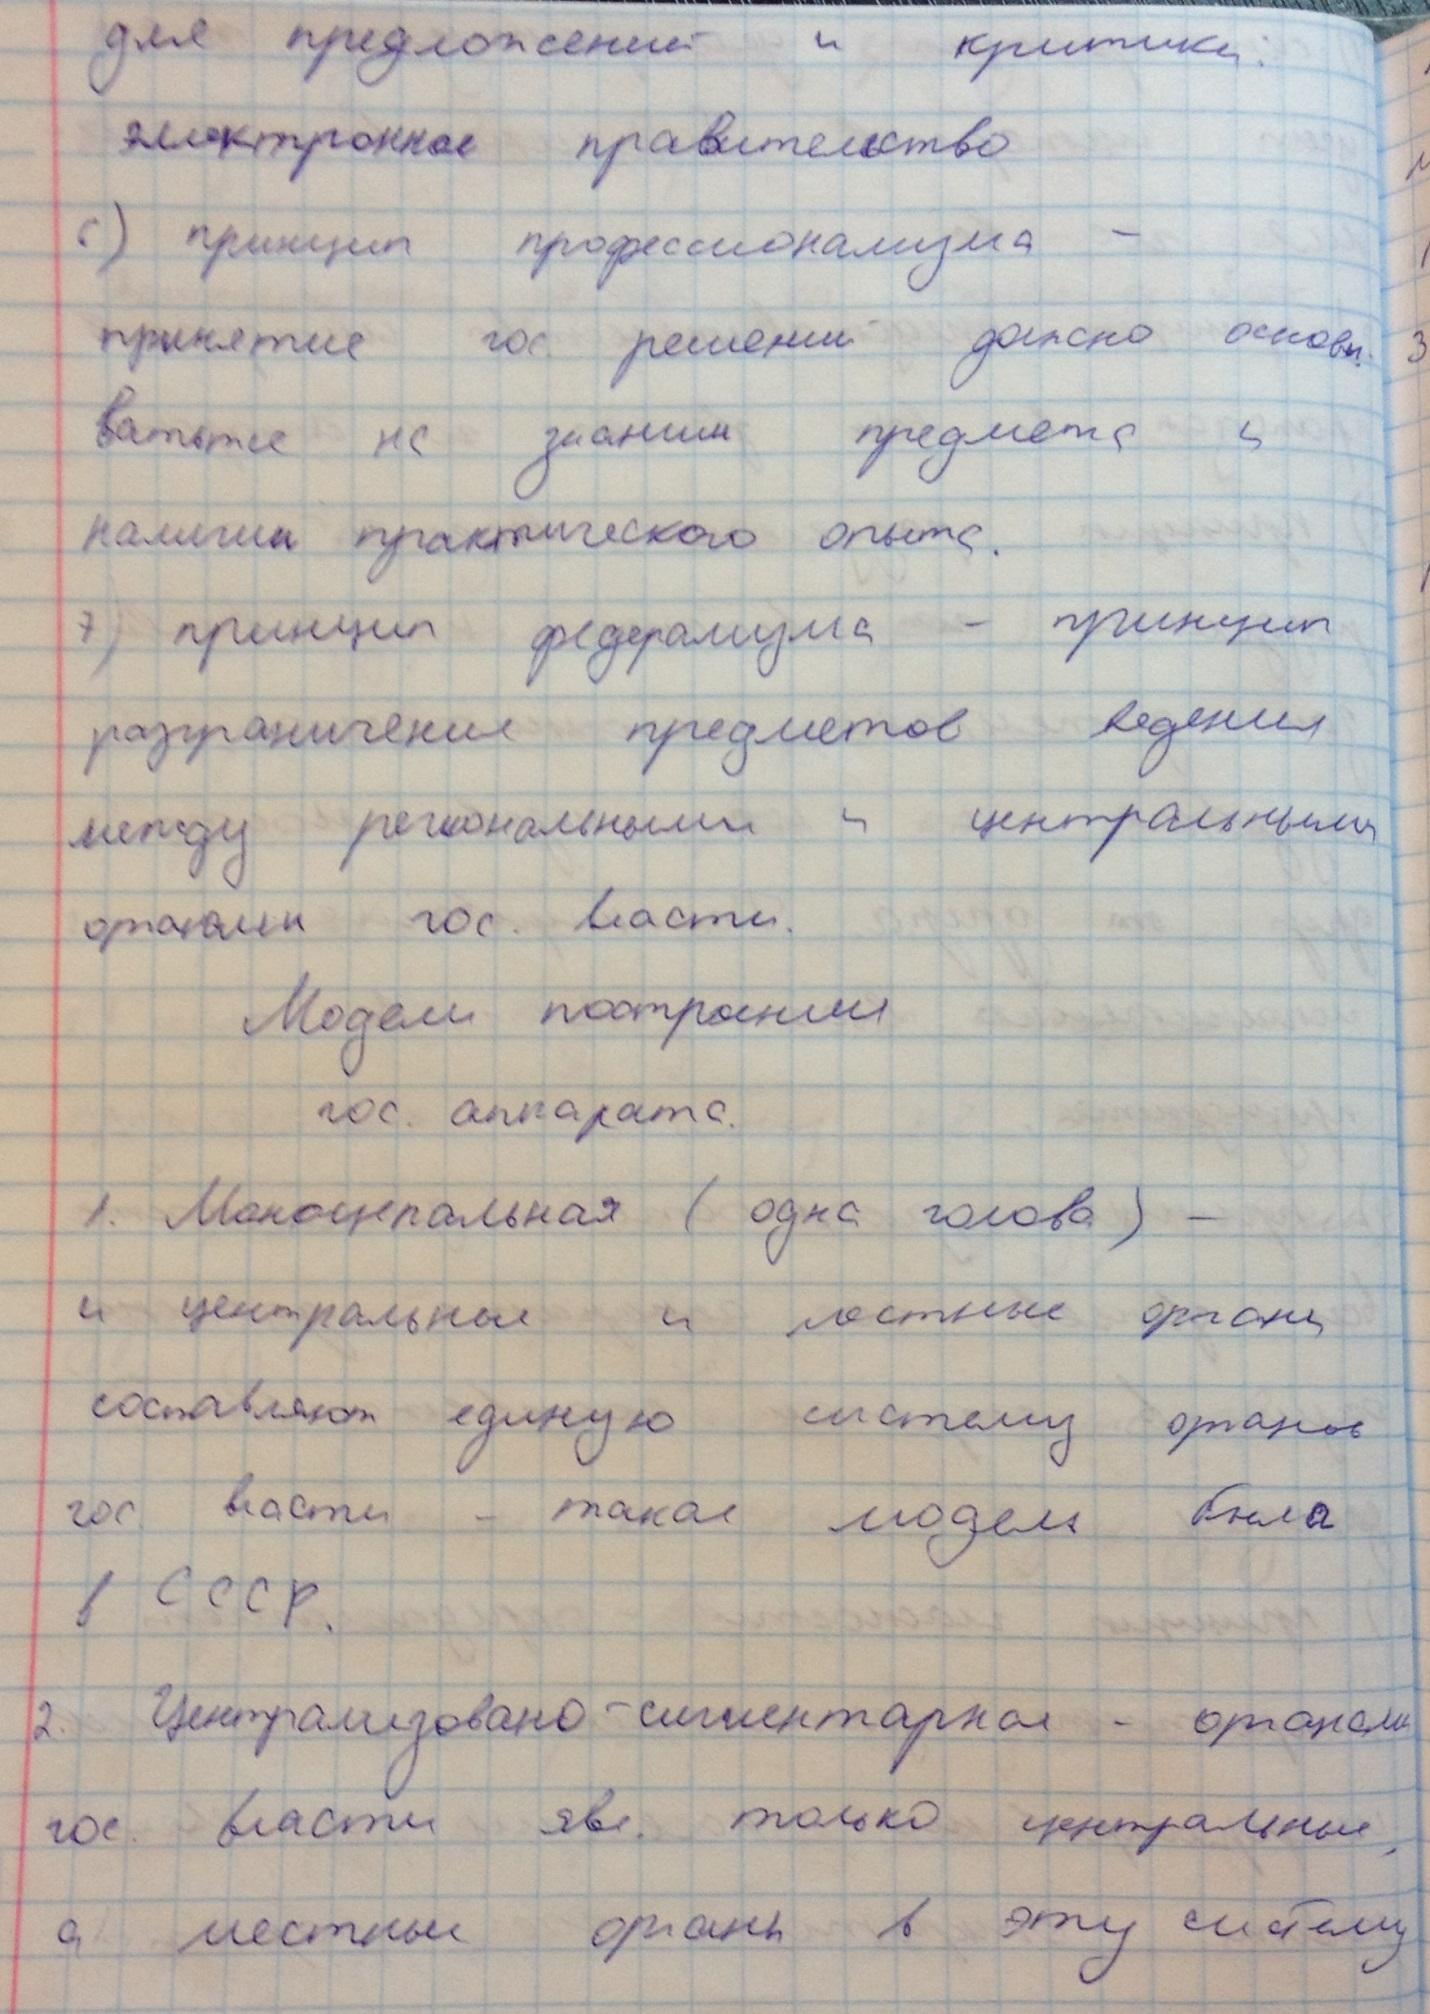 для предложений и критики:
электронное правительство
6) принцип профессионализма -
принятие гос решений должно основы-
ваться на знании предмета и
наличии практического опыта.
7) принцип федерализма - принцип
разграничения предметов ведения
между региональными и центральными
органами гос. власти.
Модели построения
гос. аппарата.
1. Моноцепальная (одна голова) -
и центральные и местные органы
составляют единую систему органов
гос. власти - такая модель была
в СССР.
2. Централизовано-сигментарная - органами
гос. власти явл. только центральные,
а местные органы в эту систему